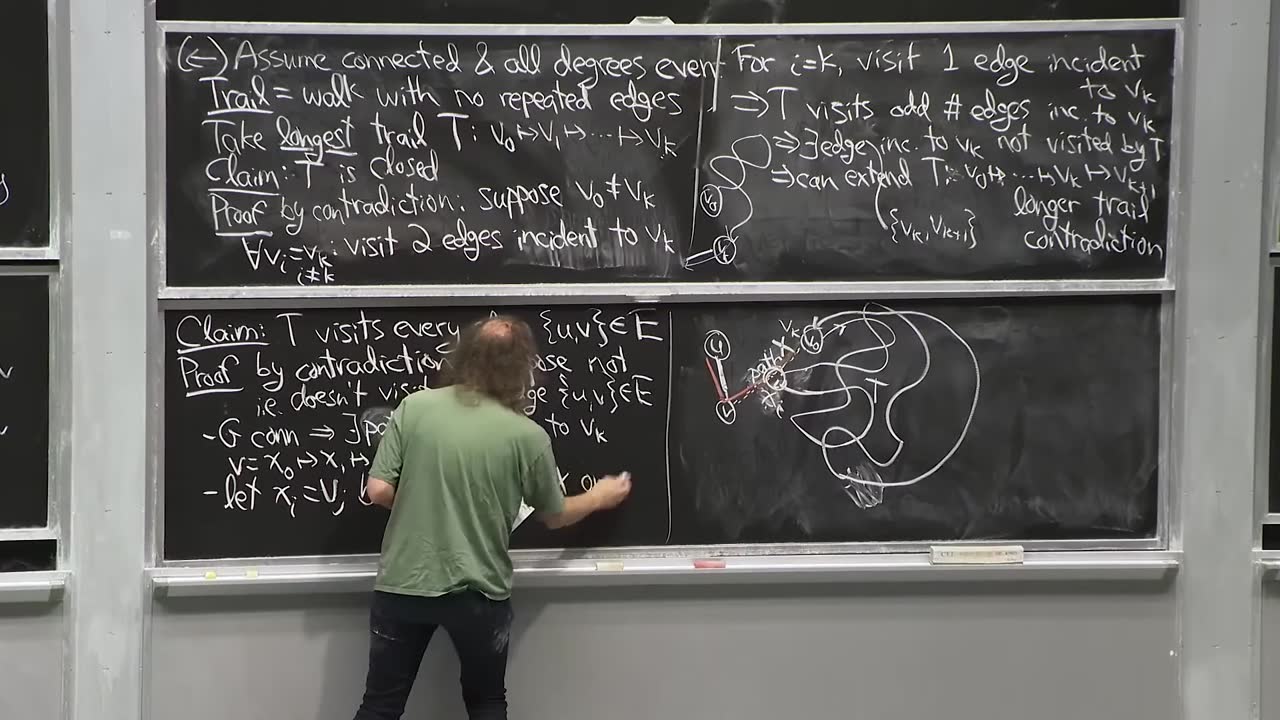 (←) Assume connected & all degrees even
Trail = walk with no repeated edges
Take longest trail T: v₀ ↦ v₁ ↦ ⋯ ↦ vₖ
Claim: T is closed
Proof by contradiction: suppose v₀ ≠ vₖ
∀vᵢ = vₖ: visit 2 edges incident to vₖ
i≠k
For i=k, visit 1 edge incident
to vₖ
⇒ T visits odd # edges inc. to vₖ
⇒ ∃ edge inc. to vₖ not visited by T
⇒ can extend T: v₀ ↦ ⋯ ↦ vₖ ↦ vₖ₊₁
{vₖ, vₖ₊₁}
longer trail
contradiction
v₀
vₖ
Claim: T visits every {u,v} ∈ E
Proof by contradiction not
i.e. doesn't visit {u,v} ∈ E
- G conn ⇒ ∃ to vₖ
v = x₀ ↦ x₁ ↦
- let xᵢ = vⱼ
u
v
path
xᵢ
vₖ
v₀
T